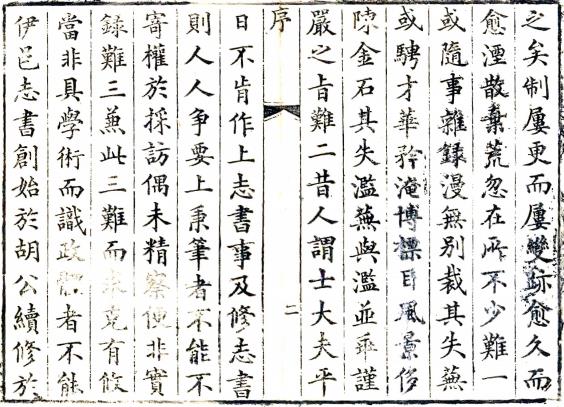 之矣制屢更而屢變跡愈久而
愈湮散棄荒忽在所不少難一
或隨事雜錄漫無別裁其失蕪
或騁才華矜淹博標目風景侈
陳金石其失濫蕪與濫並乖謹
嚴之旨難二昔人謂士大夫平
序
二
日不肯作上志書事及修志書
則人人爭要上秉筆者不能不
寄權於採訪偶未精察便非實
錄難三兼此三難而求克有攸
當非具學術而識政體者不能
伊邑志書創始於胡公續修於